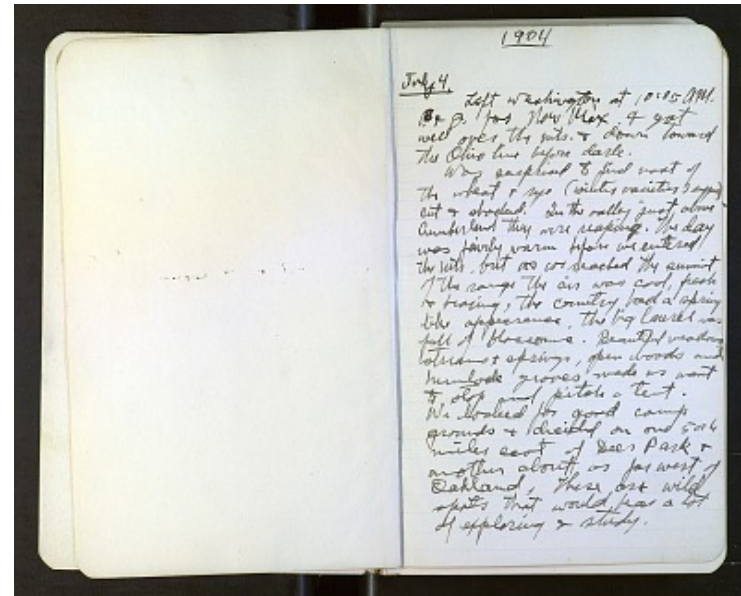 1904
July 4.
Left Washington at 10:05 A.M.
B & O for New Mex. & got
well over the mts. & down toward
the Ohio line before dark.
Was surprised to find most of
the wheat & rye (winter varieties)
cut & shocked. In the valley just above
Cumberland they were reaping. The day
was fairly warm before we entered
the mts. but as we reached the summit
of the range the air was cool, fresh
& bracing, the country had a spring
like appearance, the big laurel was
full of blossoms. Beautiful meadows
streams & springs, open woods and
hemlock groves, made us want
to stop and pitch a tent.
We looked for good camp
grounds & decided on one 5 or 6
miles east of Deer Park &
another about as far west of
Oakland, these are wild
spots that would bear a lot
of exploring & study.